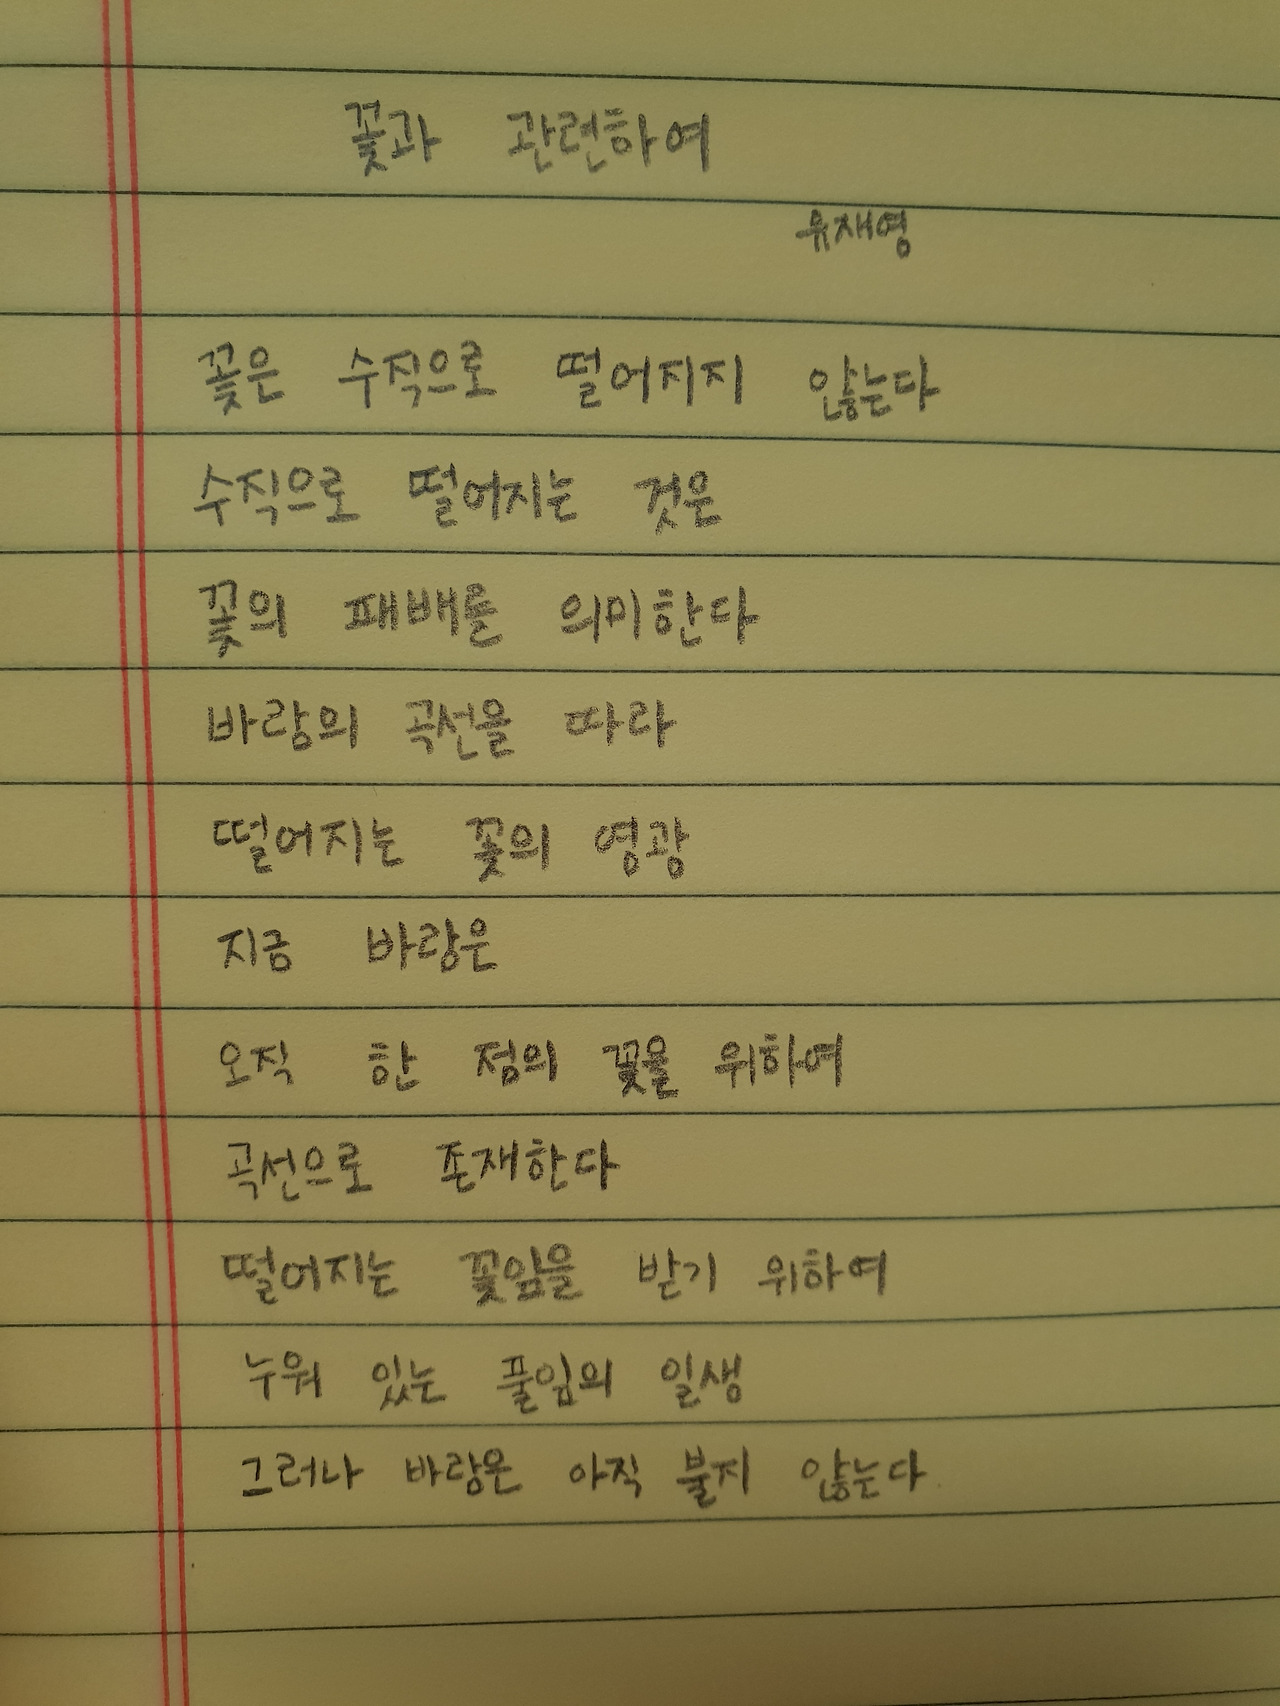 꽃과 관련하여
유재영
꽃은 수직으로 떨어지지 않는다
수직으로 떨어지는 것은
꽃의 패배를 의미한다
바람의 곡선을 따라
떨어지는 꽃의 영광
지금 바람은
오직 한 점의 꽃을 위하여
곡선으로 존재한다
떨어지는 꽃잎을 받기 위하여
누워 있는 풀잎의 일생
그러나 바람은 아직 불지 않는다.